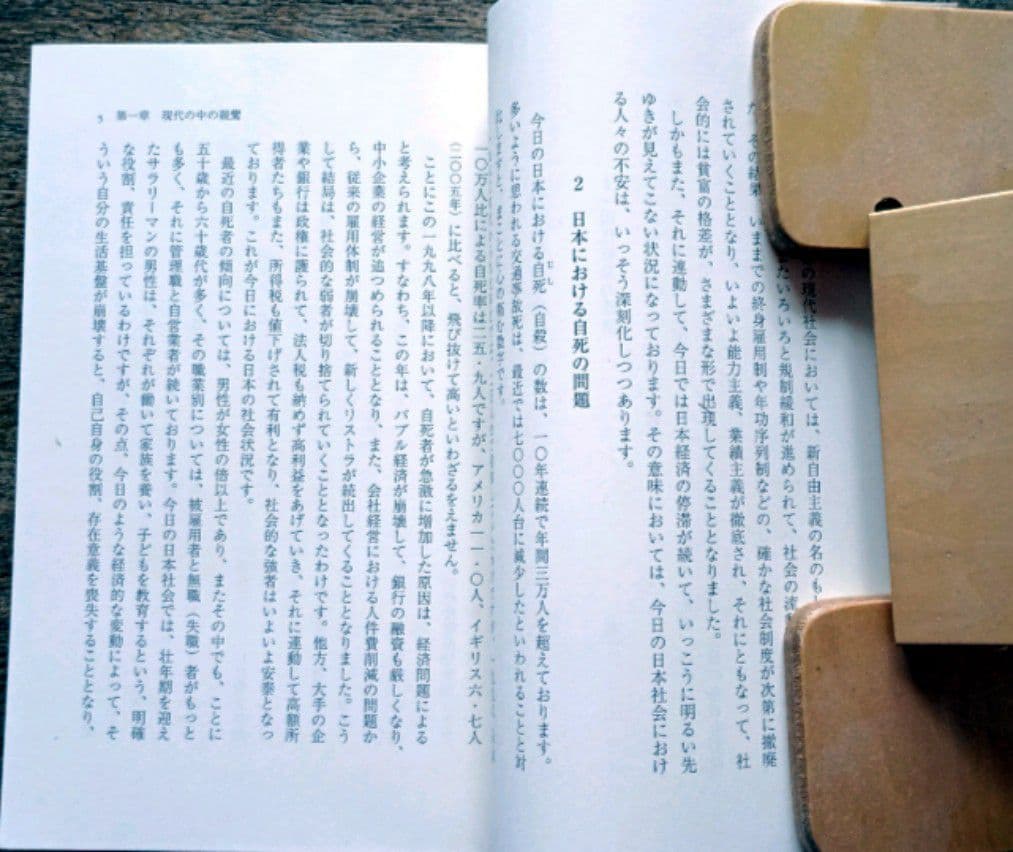 の現代社会においては、新自由主義の名のも
たいろいろと規制緩和が進められて、社会の
た。その結果、いままでの終身雇用制や年功序列制などの、確かな社会制度が次第に撤廃
されていくこととなり、いよいよ能力主義、業績主義が徹底され、それにともなって、社
会的には貧富の格差が、さまざまな形で出現してくることとなりました。
しかもまた、それに連動して、今日では日本経済の停滞が続いて、いっこうに明るい先
ゆきが見えてこない状況になっております。その意味においては、今日の日本社会におけ
る人々の不安は、いっそう深刻化しつつあります。
2 日本における自死の問題
今日の日本における自死（自殺）の数は、一〇年連続で年間三万人を超えております。
多いように思われる交通事故死は、最近では七〇〇〇人台に減少したといわれることと対
比しますと、まことに心の痛む数です。
5 第一章 現代の中の親鸞
一〇万人比による自死率は二五・九人ですが、アメリカ一一・〇人、イギリス六・七人
（二〇〇五年）に比べると、飛び抜けて高いといわざるをえません。
ことにこの一九九八年以降において、自死者が急激に増加した原因は、経済問題による
と考えられます。すなわち、この年は、バブル経済が崩壊して、銀行の融資も厳しくなり、
中小企業の経営が追つめられることとなり、また、会社経営における人件費削減の問題か
ら、従来の雇用体制が崩壊して、新しくリストラが続出してくることとなりました。こう
して結局は、社会的な弱者が切り捨てられていくこととなったわけです。他方、大手の企
業や銀行は政権に護られて、法人税も納めず高利益をあげていき、それに連動して高額所
得者たちもまた、所得税も値下げされて有利となり、社会的な強者はいよいよ安泰となっ
ております。これが今日における日本の社会状況です。
最近の自死者の傾向については、男性が女性の倍以上であり、またその中でも、ことに
五十歳から六十歳代が多く、その職業別については、被雇用者と無職（失職）者がもっと
も多く、それに管理職と自営業者が続いております。今日の日本社会では、壮年期を迎え
たサラリーマンの男性は、それぞれが働いて家族を養い、子どもを教育するという、明確
な役割、責任を担っているわけですが、その点、今日のような経済的な変動によって、そ
ういう自分の生活基盤が崩壊すると、自己自身の役割、存在意義を喪失することとなり、